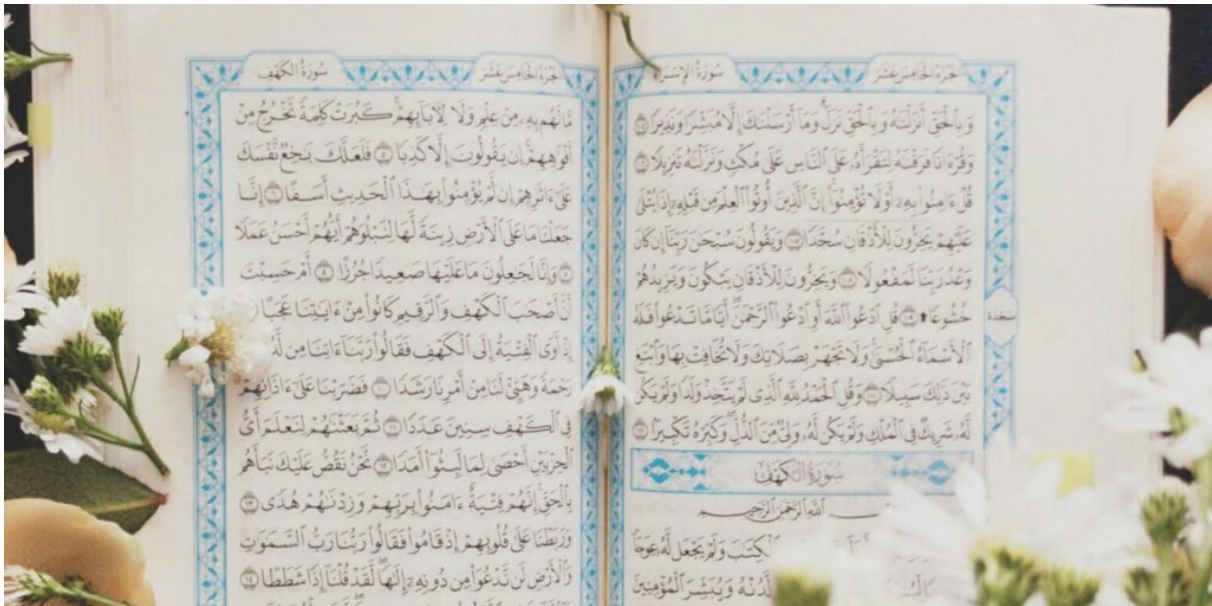 سُورَةُ الإِسْرَاءِ الجُزْءُ الخَامِسَ عَشَرَ
وَبِٱلْحَقِّ أَنزَلْنَٰهُ وَبِٱلْحَقِّ نَزَلَ وَمَآ أَرْسَلْنَٰكَ إِلَّا مُبَشِّرًا وَنَذِيرًا ١٠٥
وَقُرْءَانًا فَرَقْنَٰهُ لِتَقْرَأَهُۥ عَلَى ٱلنَّاسِ عَلَىٰ مُكْثٍ وَنَزَّلْنَٰهُ تَنزِيلًا ١٠٦
قُلْ ءَامِنُوا۟ بِهِۦٓ أَوْ لَا تُؤْمِنُوٓا۟ إِنَّ ٱلَّذِينَ أُوتُوا۟ ٱلْعِلْمَ مِن قَبْلِهِۦٓ إِذَا يُتْلَىٰ
عَلَيْهِمْ يَخِرُّونَ لِلْأَذْقَانِ سُجَّدًا ١٠٧ وَيَقُولُونَ سُبْحَٰنَ رَبِّنَآ إِن كَانَ
وَعْدُ رَبِّنَا لَمَفْعُولًا ١٠٨ وَيَخِرُّونَ لِلْأَذْقَانِ يَبْكُونَ وَيَزِيدُهُمْ
خُشُوعًا ۩ ١٠٩ قُلِ ٱدْعُوا۟ ٱللَّهَ أَوِ ٱدْعُوا۟ ٱلرَّحْمَٰنَ أَيًّا مَّا تَدْعُوا۟ فَلَهُ
سَجْدَة
ٱلْأَسْمَآءُ ٱلْحُسْنَىٰ وَلَا تَجْهَرْ بِصَلَاتِكَ وَلَا تُخَافِتْ بِهَا وَٱبْتَغِ
بَيْنَ ذَٰلِكَ سَبِيلًا ١١٠ وَقُلِ ٱلْحَمْدُ لِلَّهِ ٱلَّذِى لَمْ يَتَّخِذْ وَلَدًا وَلَمْ يَكُن
لَّهُۥ شَرِيكٌ فِى ٱلْمُلْكِ وَلَمْ يَكُن لَّهُۥ وَلِىٌّ مِّنَ ٱلذُّلِّ وَكَبِّرْهُ تَكْبِيرًۢا ١١١
سُورَةُ الكَهْفِ
ٱللَّهِ ٱلرَّحْمَٰنِ ٱلرَّحِيمِ
ٱلْكِتَٰبَ وَلَمْ يَجْعَل لَّهُۥ عِوَجًا
لَّدُنْهُ وَيُبَشِّرَ ٱلْمُؤْمِنِينَ
سُورَةُ الكَهْفِ الجُزْءُ الخَامِسَ عَشَرَ
مَّا لَهُم بِهِۦ مِنْ عِلْمٍ وَلَا لِءَابَآئِهِمْ كَبُرَتْ كَلِمَةً تَخْرُجُ مِنْ
أَفْوَٰهِهِمْ إِن يَقُولُونَ إِلَّا كَذِبًا ٥ فَلَعَلَّكَ بَٰخِعٌ نَّفْسَكَ
عَلَىٰٓ ءَاثَٰرِهِمْ إِن لَّمْ يُؤْمِنُوا۟ بِهَٰذَا ٱلْحَدِيثِ أَسَفًا ٦ إِنَّا
جَعَلْنَا مَا عَلَى ٱلْأَرْضِ زِينَةً لَّهَا لِنَبْلُوَهُمْ أَيُّهُمْ أَحْسَنُ عَمَلًا
٧ وَإِنَّا لَجَٰعِلُونَ مَا عَلَيْهَا صَعِيدًا جُرُزًا ٨ أَمْ حَسِبْتَ
أَنَّ أَصْحَٰبَ ٱلْكَهْفِ وَٱلرَّقِيمِ كَانُوا۟ مِنْ ءَايَٰتِنَا عَجَبًا
إِذْ أَوَى ٱلْفِتْيَةُ إِلَى ٱلْكَهْفِ فَقَالُوا۟ رَبَّنَآ ءَاتِنَا مِن
رَحْمَةً وَهَيِّئْ لَنَا مِنْ أَمْرِنَا رَشَدًا ١٠ فَضَرَبْنَا عَلَىٰٓ ءَاذَانِهِمْ
فِى ٱلْكَهْفِ سِنِينَ عَدَدًا ١١ ثُمَّ بَعَثْنَٰهُمْ لِنَعْلَمَ أَىُّ
ٱلْحِزْبَيْنِ أَحْصَىٰ لِمَا لَبِثُوٓا۟ أَمَدًا ١٢ نَّحْنُ نَقُصُّ عَلَيْكَ نَبَأَهُم
بِٱلْحَقِّ إِنَّهُمْ فِتْيَةٌ ءَامَنُوا۟ بِرَبِّهِمْ وَزِدْنَٰهُمْ هُدًى ١٣
وَرَبَطْنَا عَلَىٰ قُلُوبِهِمْ إِذْ قَامُوا۟ فَقَالُوا۟ رَبُّنَا رَبُّ ٱلسَّمَٰوَٰتِ
وَٱلْأَرْضِ لَن نَّدْعُوَا۟ مِن دُونِهِۦٓ إِلَٰهًا لَّقَدْ قُلْنَآ إِذًا شَطَطًا ١٤